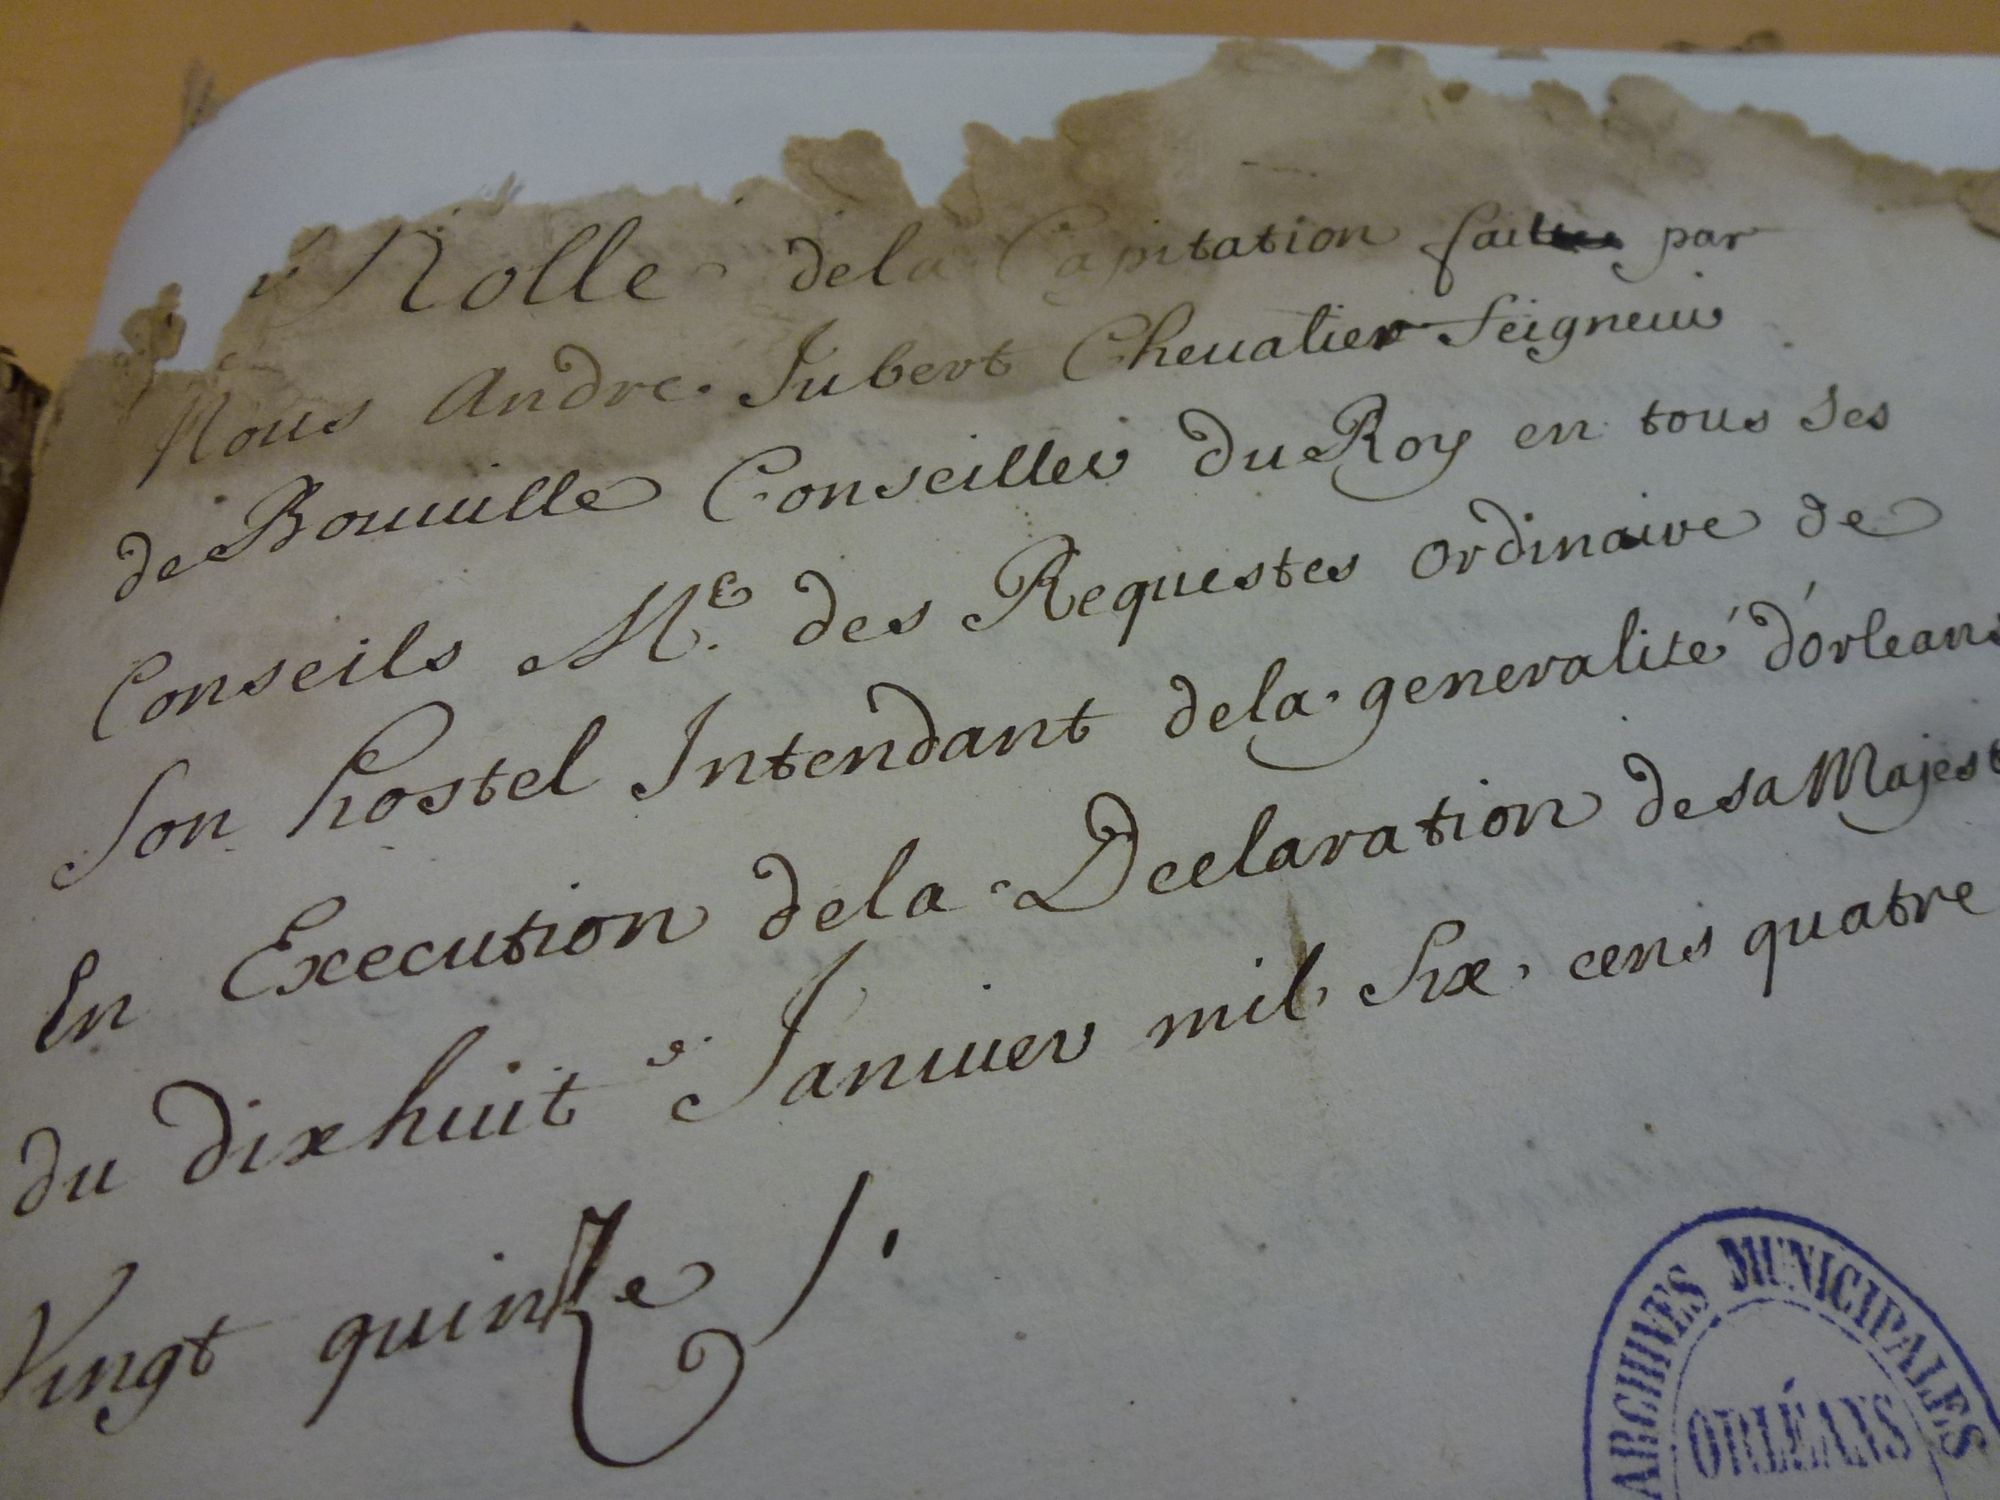 Rolle dela Capitation faitte par
Nous Andre Jubert Cheualier Seigneur
de Bouuille Conseiller du Roy en tous ses
Conseils Me. des Requestes ordinaire de
son hostel Intendant dela generalité d'orleans
En Execution dela Declaration de sa Majest
du dixhuit e. Januier mil six cens quatre
Vingt quinze
ARCHIVES MUNICIPALES
ORLÉANS